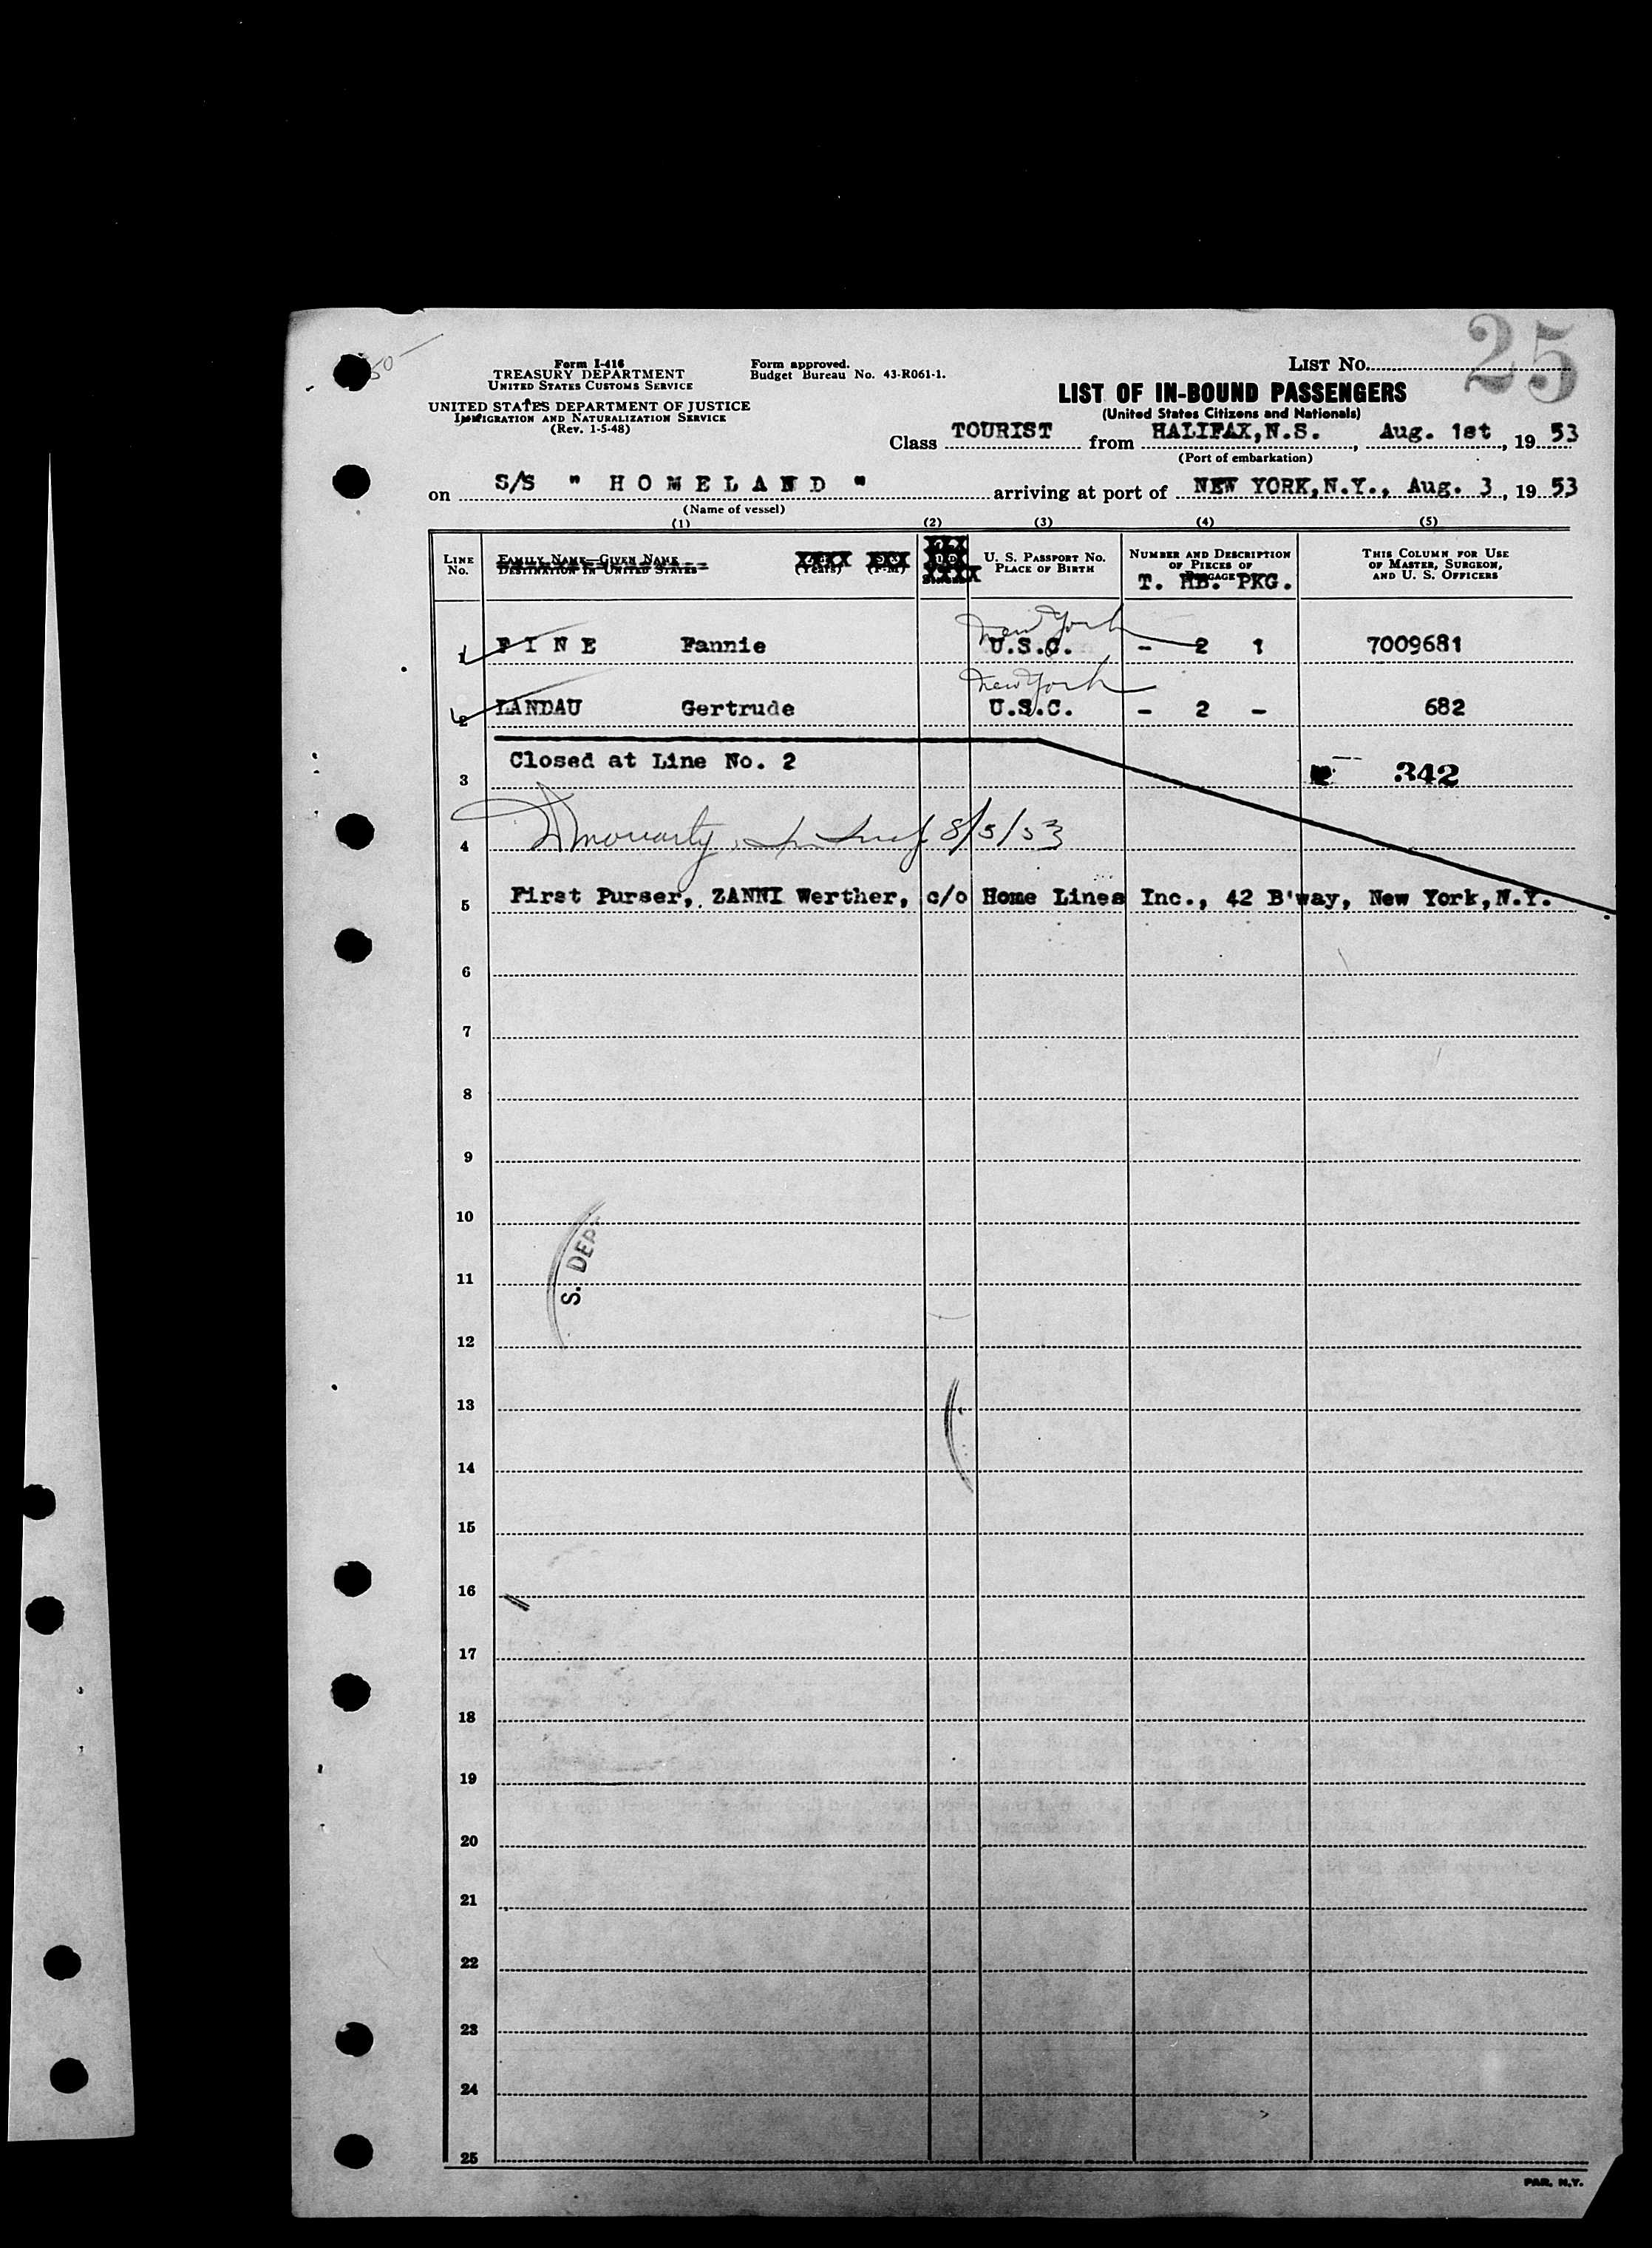 25
50
Form I-416
TREASURY DEPARTMENT
UNITED STATES CUSTOMS SERVICE
UNITED STATES DEPARTMENT OF JUSTICE
IMMIGRATION AND NATURALIZATION SERVICE
(Rev. 1-5-48)
Form approved.
Budget Bureau No. 43-R061-1.
LIST NO.
LIST OF IN-BOUND PASSENGERS
(United States Citizens and Nationals)
Class TOURIST from HALIFAX, N.S., Aug. 1st, 19 53
(Port of embarkation)
on S/S " H O M E L A N D " arriving at port of NEW YORK, N.Y., Aug. 3, 19 53
(Name of vessel)
(1) (2) (3) (4) (5)
LINE NO.
FAMILY NAME—GIVEN NAME
DESTINATION IN UNITED STATES
(Years) (F-M)
U. S. PASSPORT NO.
PLACE OF BIRTH
NUMBER AND DESCRIPTION
OF PIECES OF
BAGGAGE
T. HB. PKG.
THIS COLUMN FOR USE
OF MASTER, SURGEON,
AND U. S. OFFICERS
New York
1 F I N E Fannie U.S.C. - 2 1 7009681
New York
2 LANDAU Gertrude U.S.C. - 2 - 682
Closed at Line No. 2
3 342
4 Moriarty 8/5/53
5 First Purser, ZANNI Werther, c/o Home Lines Inc., 42 B'way, New York, N.Y.
6
7
8
9
10
11
S. DEPT
12
13
14
15
16
17
18
19
20
21
22
23
24
25
PAR. N.Y.